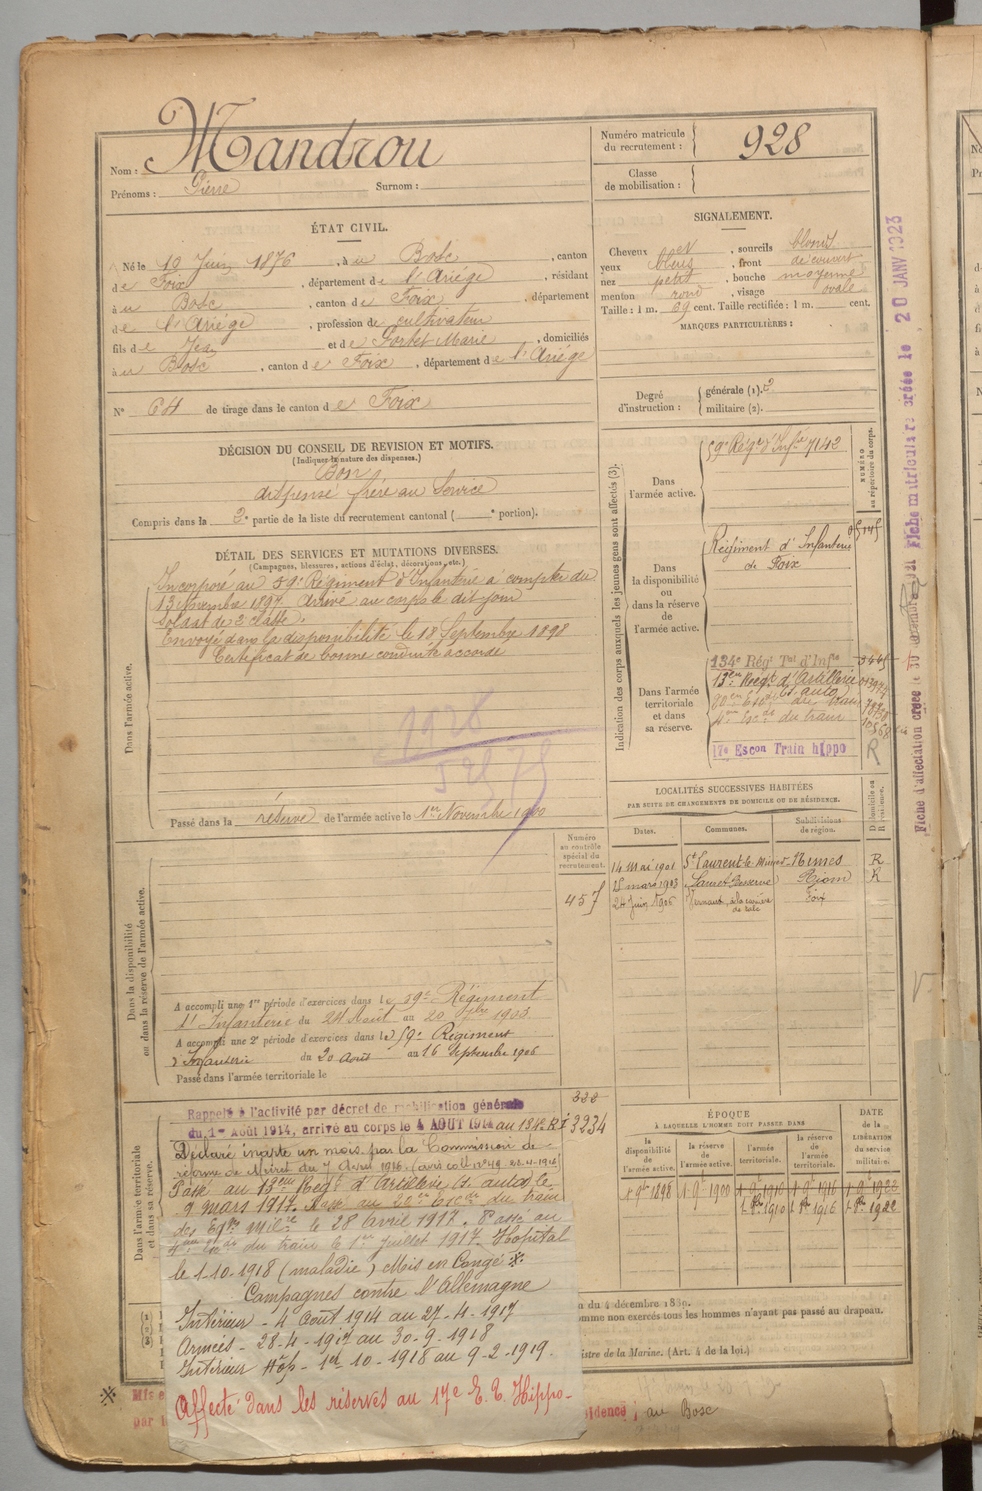 Nom : Mandrou
Prénoms : Pierre Surnom :
Numéro matricule du recrutement : 928
Classe de mobilisation :
ÉTAT CIVIL.
Né le 10 Juin 1876, à u Bosc, canton
de Foix, département de l'Ariége, résidant
à u Bosc, canton de Foix, département
de l'Ariége, profession de cultivateur
fils de Jean et de Fortet Marie, domiciliés
à u Bosc, canton de Foix, département de l'Ariége
N° 64 de tirage dans le canton de Foix
SIGNALEMENT.
Cheveux et, sourcils blonds
yeux bleus, front découvert
nez petit, bouche moyenne
menton rond, visage ovale
Taille : 1 m. 69 cent. Taille rectifiée : 1 m. cent.
MARQUES PARTICULIÈRES :
Degré d'instruction : générale (1). 3
militaire (2).
DÉCISION DU CONSEIL DE REVISION ET MOTIFS.
(Indiquer la nature des dispenses.)
Bon
dispensé frère au Service
Compris dans la 2e partie de la liste du recrutement cantonal ( e portion).
DÉTAIL DES SERVICES ET MUTATIONS DIVERSES.
(Campagnes, blessures, actions d'éclat, décorations, etc.)
Dans l'armée active.
Incorporé au 59e Régiment d'Infanterie à compter du
13 Novembre 1897 Arrivé au corps le dit jour
Soldat de 2e classe.
Envoyé dans la disponibilité le 18 Septembre 1898
Certificat de bonne conduite accordé
Passé dans la réserve de l'armée active le 1er Novembre 1900
Indication des corps auxquels les jeunes gens sont affectés (3).
NUMÉRO au répertoire du corps.
Dans l'armée active.
59e Régt d'Infie 7142
Dans la disponibilité ou dans la réserve de l'armée active.
Régiment d'Infanterie
de Foix
Dans l'armée territoriale et dans sa réserve.
134e Régt Tal d'Infie 3445
13eme Regt d'Artillerie
4e Escon du train
17e Escon Train hippo R
LOCALITÉS SUCCESSIVES HABITÉES
PAR SUITE DE CHANGEMENTS DE DOMICILE OU DE RÉSIDENCE.
Dates. Communes. Subdivisions de région. Domicile ou Résidence.
14 Mai 1901 St Laurent-le-Minier Nimes R
18 mars 1903 Riom R
24 Juin 1906 à la carrière de talc Foix
Numéro au contrôle spécial du recrutement.
457
Dans la disponibilité ou dans la réserve de l'armée active.
A accompli une 1re période d'exercices dans le 59e Régiment
d'Infanterie du 24 Août au 20 7bre 1903
A accompli une 2e période d'exercices dans le 59e Régiment
d'Infanterie du 20 Août au 16 Septembre 1906
Passé dans l'armée territoriale le
Dans l'armée territoriale et dans sa réserve.
Rappelé à l'activité par décret de mobilisation générale
du 1er Août 1914, arrivé au corps le 4 AOUT 1914 au 134e RI
3234
Déclaré inapte un mois par la Commission de
réforme de du 7 Avril 1916
Passé au 13eme Regt d'Artillerie (S. autos) le
9 mars 1917. Passé au 20e Escon du train
des Eqges Milres le 28 avril 1917. Passé au
4eme Escon du train le 1er Juillet 1917. Hopital
le 1-10-1918 (maladie) Mis en Congé ※.
Campagnes contre l'Allemagne
Intérieur - 4 Aout 1914 au 27-4-1917
Armées - 28-4-1917 au 30-9-1918
Intérieur Hôp - 1er-10-1918 au 9-2-1919.
Affecté dans les réserves au 17e E. T. Hippo-
ÉPOQUE
À LAQUELLE L'HOMME DOIT PASSER DANS
la disponibilité de l'armée active. la réserve de l'armée active. l'armée territoriale. la réserve de l'armée territoriale.
DATE de la LIBÉRATION du service militaire.
1 9bre 1898 1 9bre 1900 1 9bre 1910 1 9bre 1916 1 9bre 1922
1 8bre 1910 1 8bre 1916 1 8bre 1922
n du 4 décembre 1889.
omme non exercés tous les hommes n'ayant pas passé au drapeau.
istre de la Marine. (Art. 4 de la loi.)
※ Mis e
par l
sidence ; au Bosc
Fiche matriculaire créée le 20 JANV 1923
Fiche d'affectation créée le